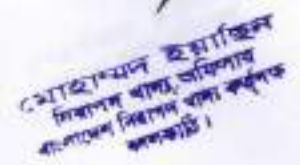 মোহাম্মদ ইয়াছিন
নিরাপদ খাদ্য অফিসার
বাংলাদেশ নিরাপদ খাদ্য কর্তৃপক্ষ
ঝালকাঠি।